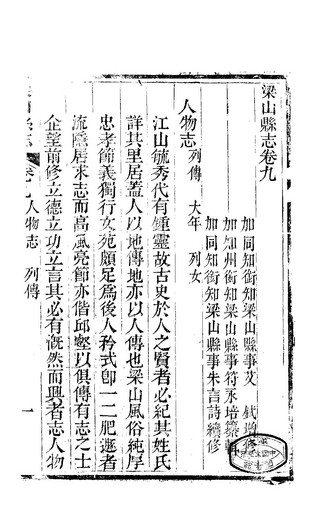 梁山縣志卷九
加同知銜知梁山縣事艾鉽增修
加知州銜知梁山縣事符永培纂
加同知銜知梁山縣事朱言詩續修
人物志 列傳 大年 列女
江山毓秀代有鍾靈故古史於人之賢者必紀其姓氏
詳其里居蓋人以地傳地亦以人傳也梁山風俗純厚
忠孝節義獨行文苑頗足為後人矜式卽一二肥遯者
流隱居求志而高風亮節亦偕邱壑以俱傳有志之士
企望前修立德立功立言其必有慨然而興者志人物
人物志 列傳 一